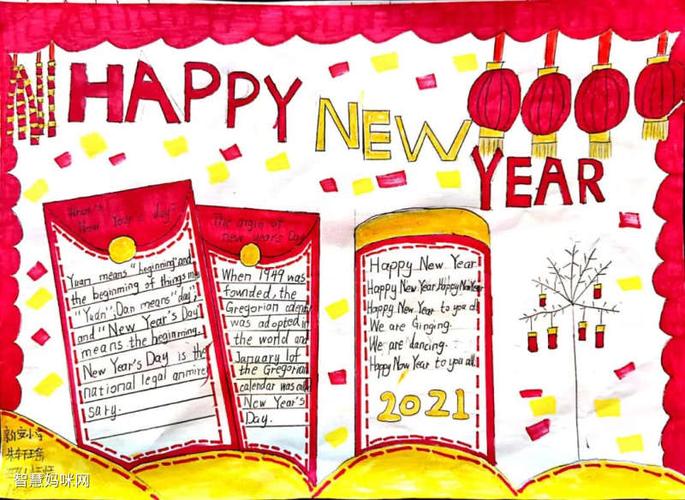 HAPPY NEW YEAR
New Year's day
Yuan means "beginning" and
the beginning of things
"Yuan", Dan means "day",
and "New Year's Day
means the beginning.
New Year's Day is the
national legal
sary.
The origin of
new year's Day
When 1949 was
founded, the
Gregorian
was adopted in
the world and
January 1 of
the Gregorian
calendar was
New Year's
Day.
Happy New Year
Happy New Year, Happy New Year
Happy New Year to you all
We are Ginging.
We are dancing.
Happy New Year to you all.
2021
智慧妈咪网